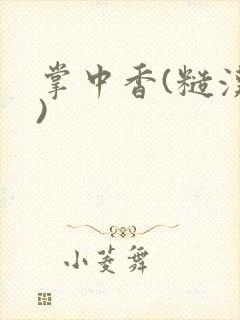 掌中香(糙汉
)
小菱舞